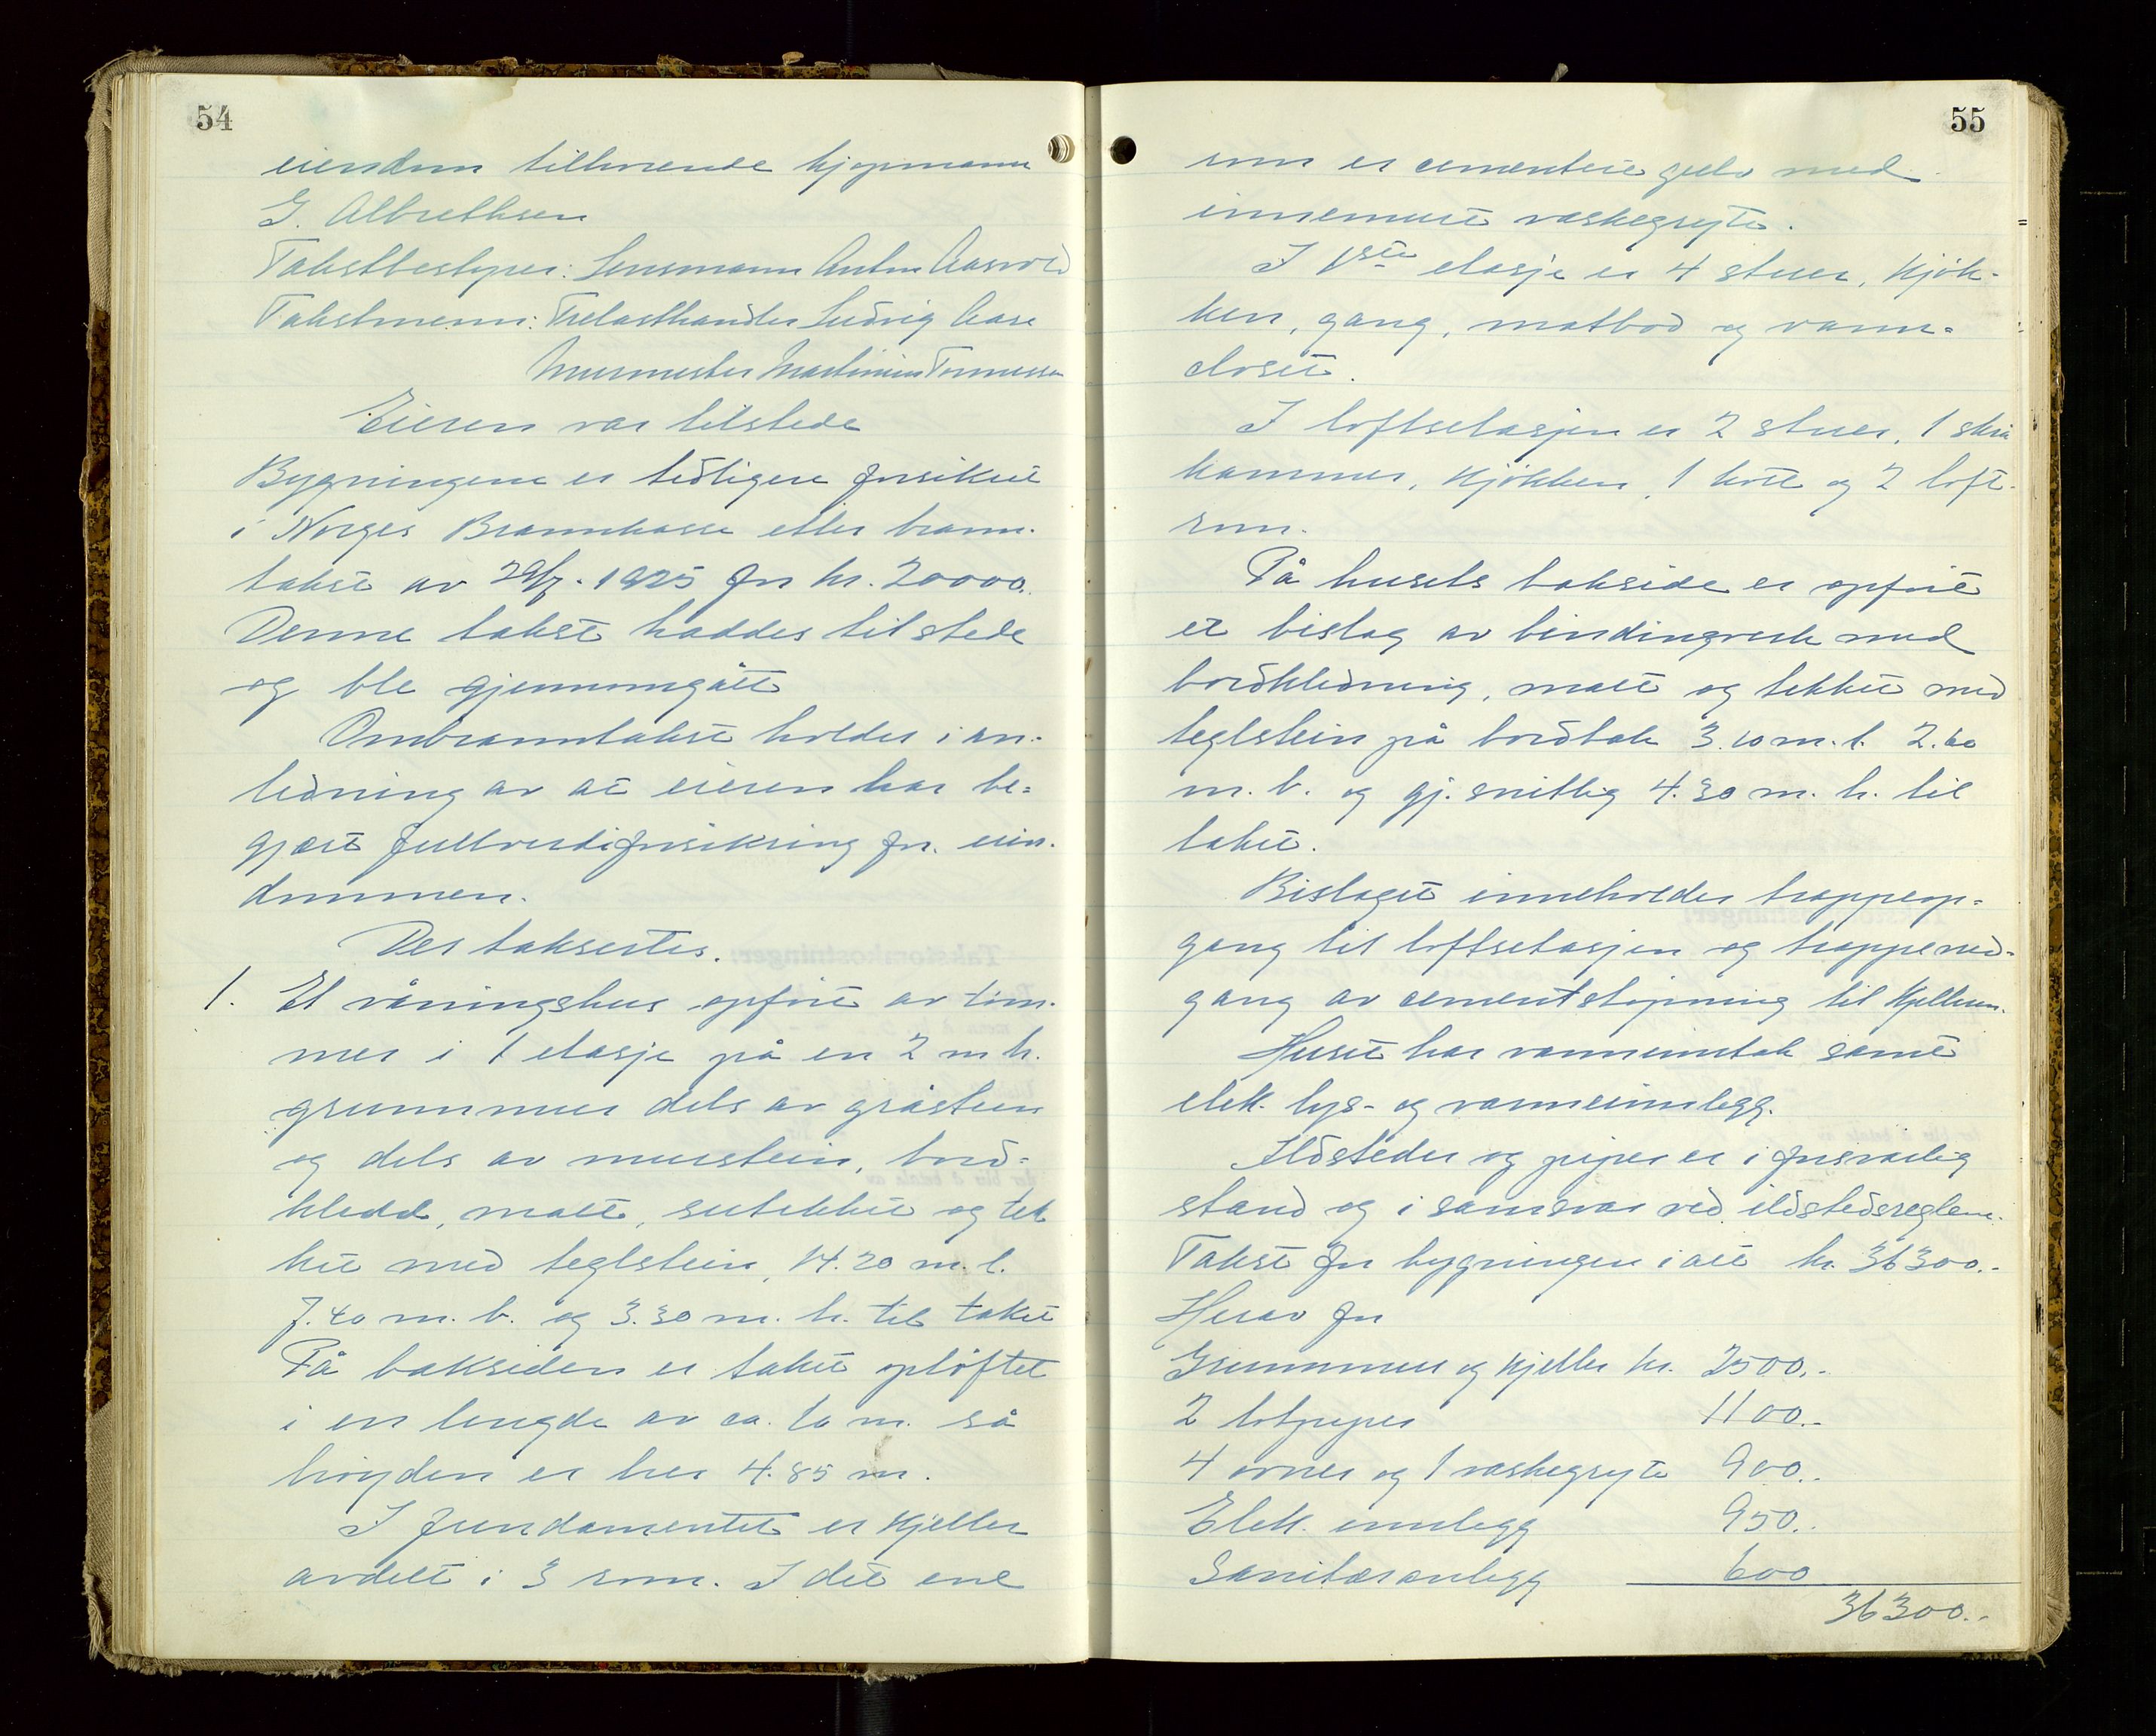 54
eiendom tilhørende kjøpmann
G. Albrethsen
Takstbestyrer: Lensmann Anton Aasvold
Takstmenn: Trelasthandler Ludvig Aase
Murmester Martinius Tønnessen
Eieren var tilstede
Bygningene er tidligere forsikret
i Norges Brannkasse etter brann-
takst av 29/7. 1925 for kr. 20000.
Denne takst haddes tilstede
og ble gjennomgått
Ombranntakst holdes i an-
ledning av at eieren har be-
gjært fullverdiforsikring for eien-
dommen.
Der taksertes.
1. Et våningshus opført av tøm-
mer i 1 etasje på en 2 m h.
grunnmur dels av gråstein
og dels av murstein, bord-
kledd, malt, sutekket og tek
ket med teglstein, 14.20 m. l.
7.40 m. b. og 3.30 m. h. til taket
På baksiden er taket opløftet
i en lengde av ca. 10 m. så
høyden er her 4.85 m.
I fundamentet er kjeller
avdelt i 3 rom. I det ene
55
rom er cementert gulv med
innemurt vaskegryte.
I 1ste etasje er 4 stuer, kjøk-
ken, gang, matbod og vann-
closett.
I loftsetasjen er 2 stuer, 1 skrå
kammer, kjøkken, 1 kott og 2 loft-
rom.
På husets bakside er opført
et bislag av bindingverk med
bordkledning, malt og tekket med
teglstein på bordtak 3.10 m. l. 2.60
m. b. og gj. snittlig 4.30 m. h. til
taket.
Bislaget inneholder trappeop-
gang til loftsetasjen og trappened-
gang av cementstøpning til kjelleren.
Huset har vanninntak samt
elek. lys- og varmeinnlegg.
Ildsteder og piper er i forsvarlig
stand og i samsvar ved ildstedsreglene.
Takst for bygningen i alt kr. 36300.-
Herav for
Grunnmur og kjeller kr. 2500.-
2 loftpiper 1100.-
4 ovner og 1 vaskegryte 900.-
Elek. innlegg 950.-
Sanitæranlegg 600
36300.-